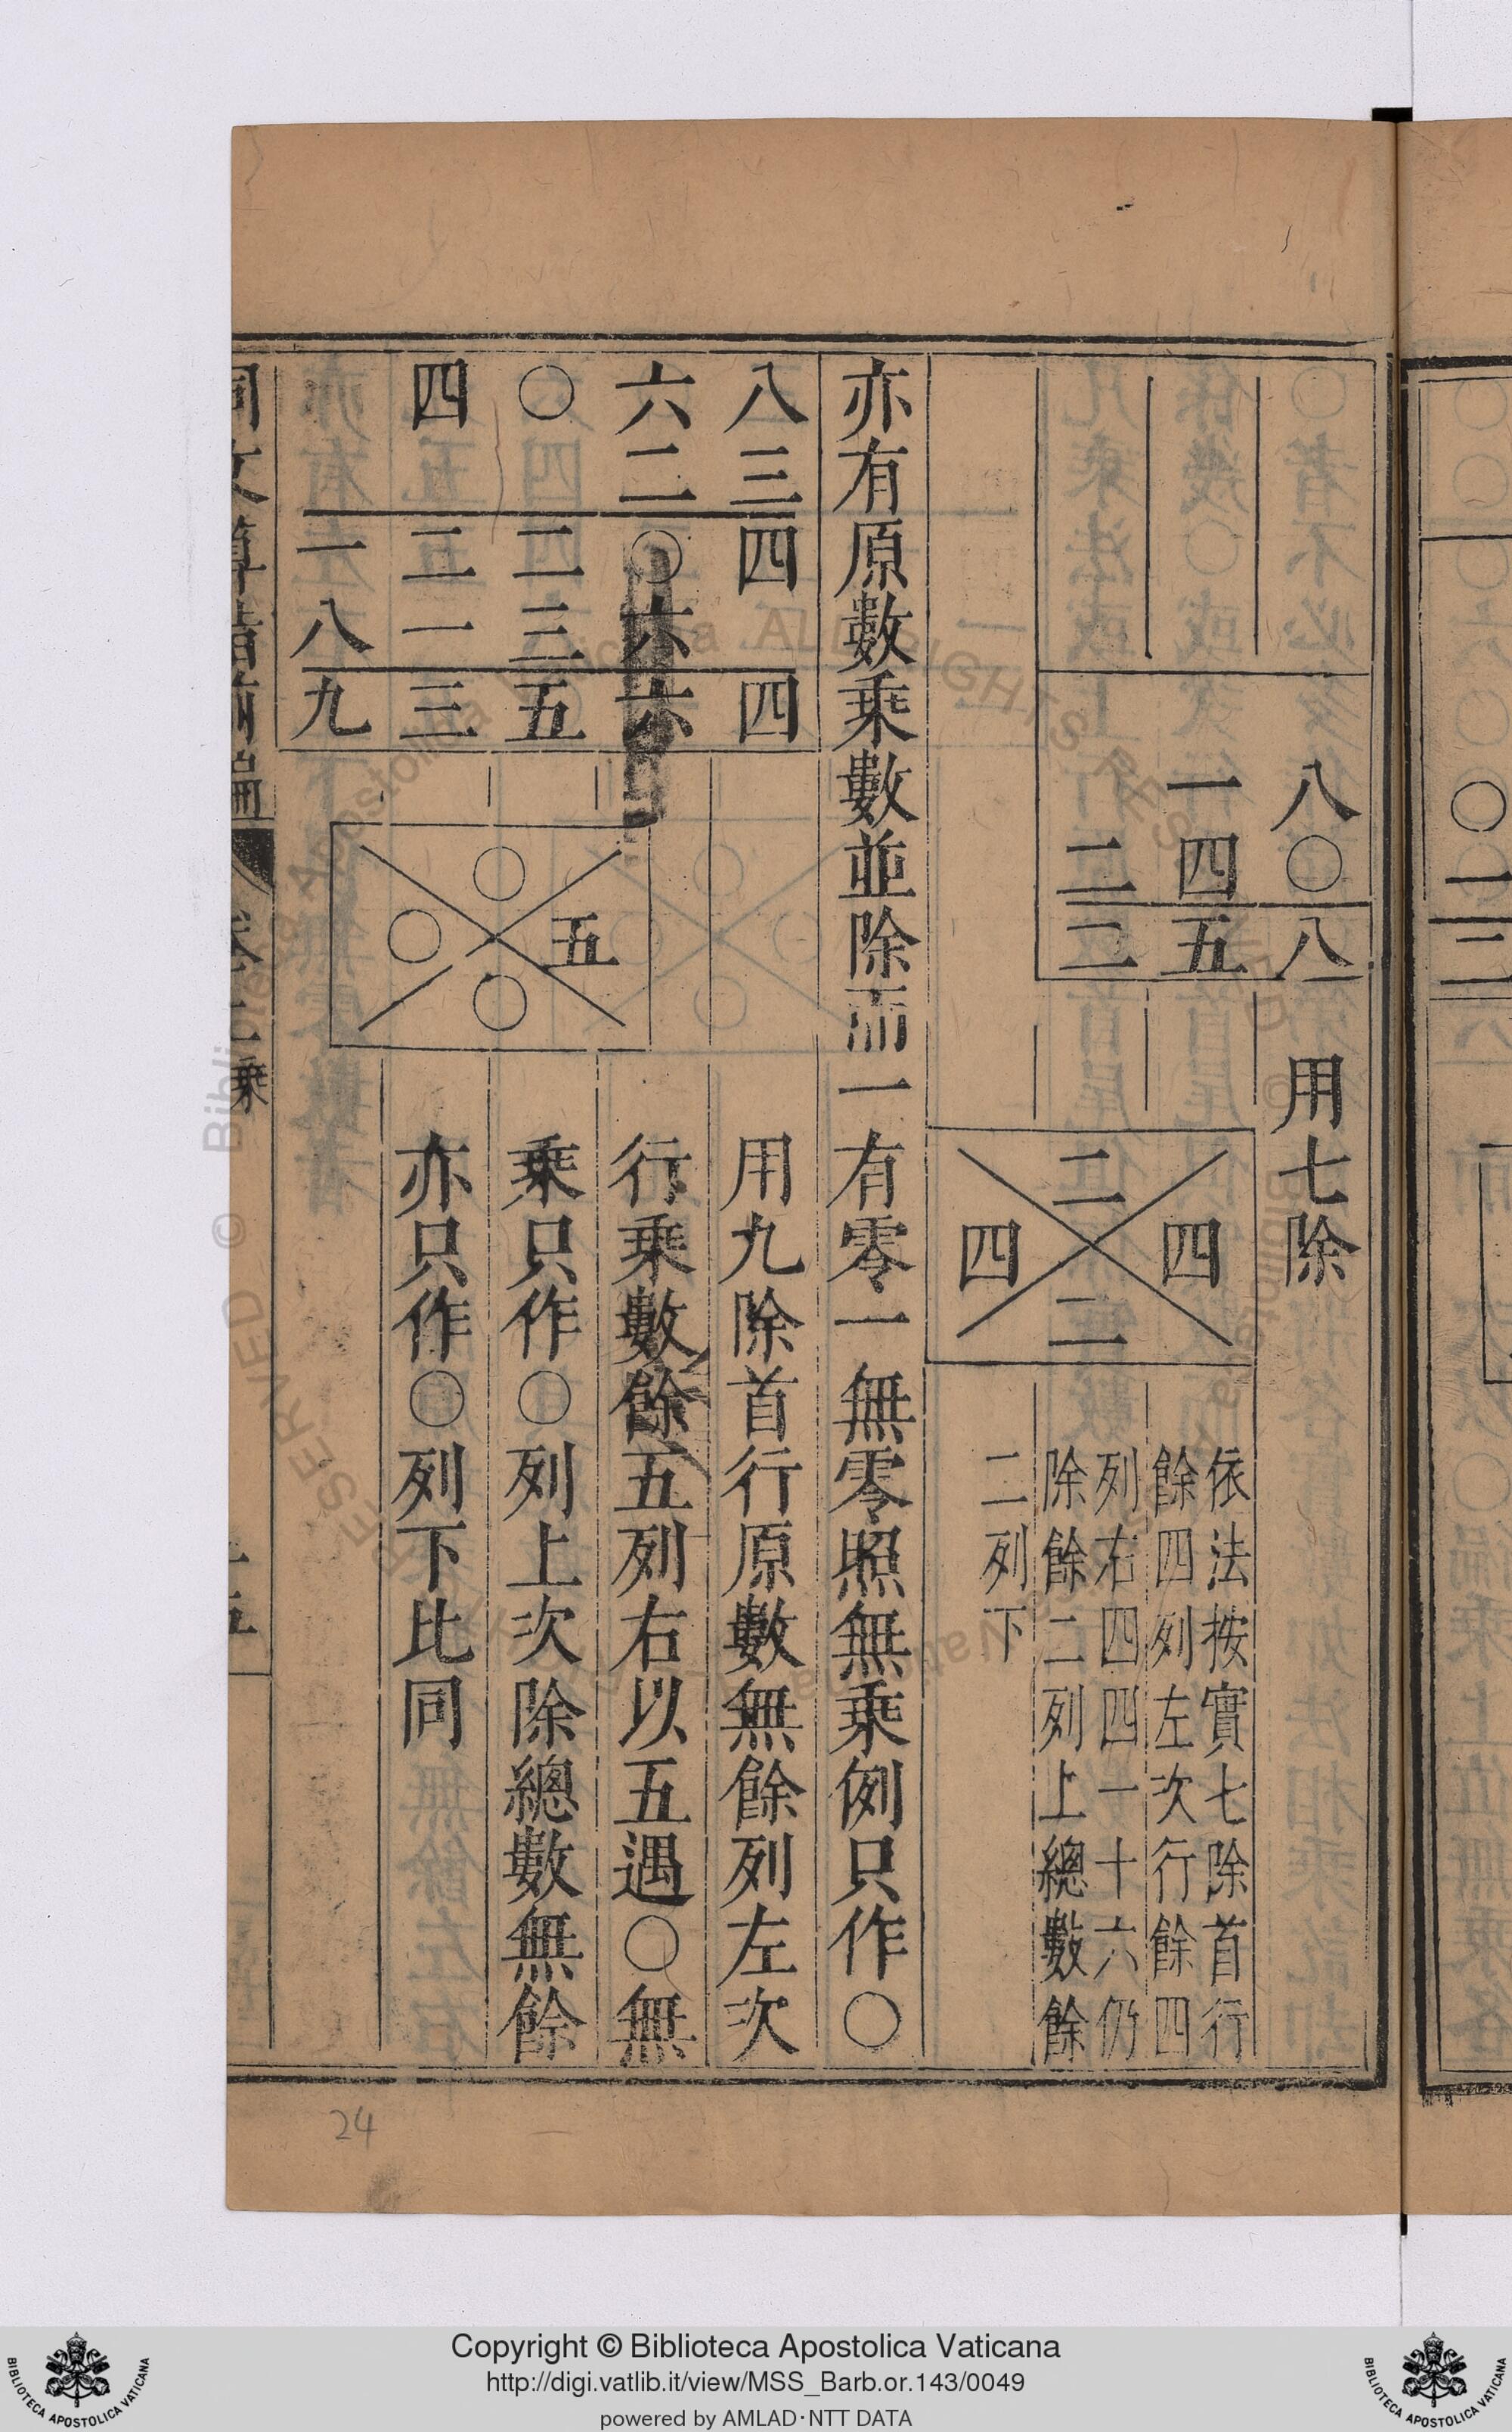 八〇八
一四五
二二
用七除
二
四
四
二
依法按實七除首行
餘四列左次行餘四
列右四四一十六仍
除餘二列上總數餘
二列下
亦有原數乘數並除而一有零一無零照無乘例只作〇
八三四四
六二〇六六
〇二三五
四二一三
一八九
〇
五
〇
〇
用九除首行原數無餘列左次
行乘數餘五列右以五遇〇無
乘只作〇列上次除總數無餘
亦只作〇列下比同
24
Copyright © Biblioteca Apostolica Vaticana
http://digi.vatlib.it/view/MSS_Barb.or.143/0049
powered by AMLAD·NTT DATA
BIBLIOTECA APOSTOLICA VATICANA
BIBLIOTECA APOSTOLICA VATICANA